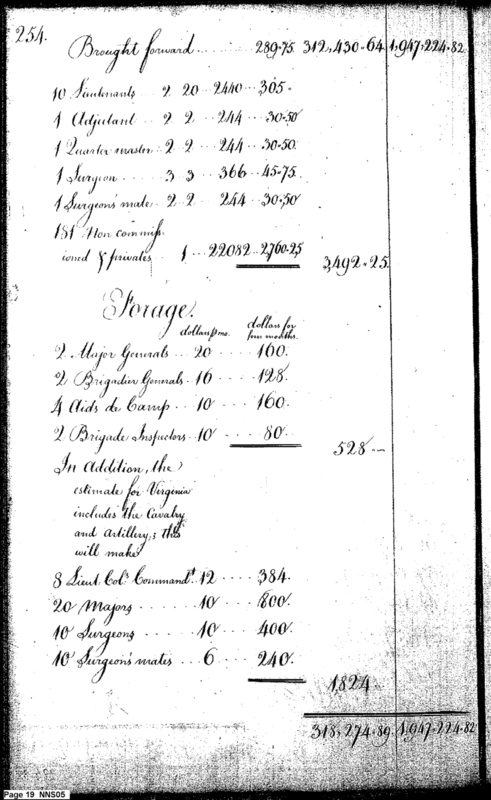 254.
Brought forward ..... 289.75 312,430.64 1,947,224.82
10 Lieutenants 2 20 2440 .. 305.
1 Adjutant .. 2 2 .. 244 ... 30.50
1 Quarter master : 2 2 .. 244 ... 30.50.
1 Surgeon ... 3 3 .. 366 .. 45.75.
1 Surgeon's mate .. 2 2 .. 244 .. 30.50
181 Non commiss
ioned & privates .. 1 .. 22082 .. 2,760.25 3,492.25
Forage.
dollars p mo. dollars for
four months.
2 Major Generals ... 20 .... 160.
2 Brigadier Generals . 16 .... 128.
4 Aids de Camp ... 10 .... 160.
2 Brigade Inspectors .. 10 .... 80. 528 --
In Addition, the
estimate for Virginia
includes the Cavalry
and Artillery; this
will make
8 Lieut Cols Commandt 12 ..... 384.
20 Majors ....... 10 .... 800.
10 Surgeons ..... 10 .... 400.
10 Surgeon's mates .. 6 .... 240.
1,824
318,274.89 1,947,224.82
Page 19 NNS05